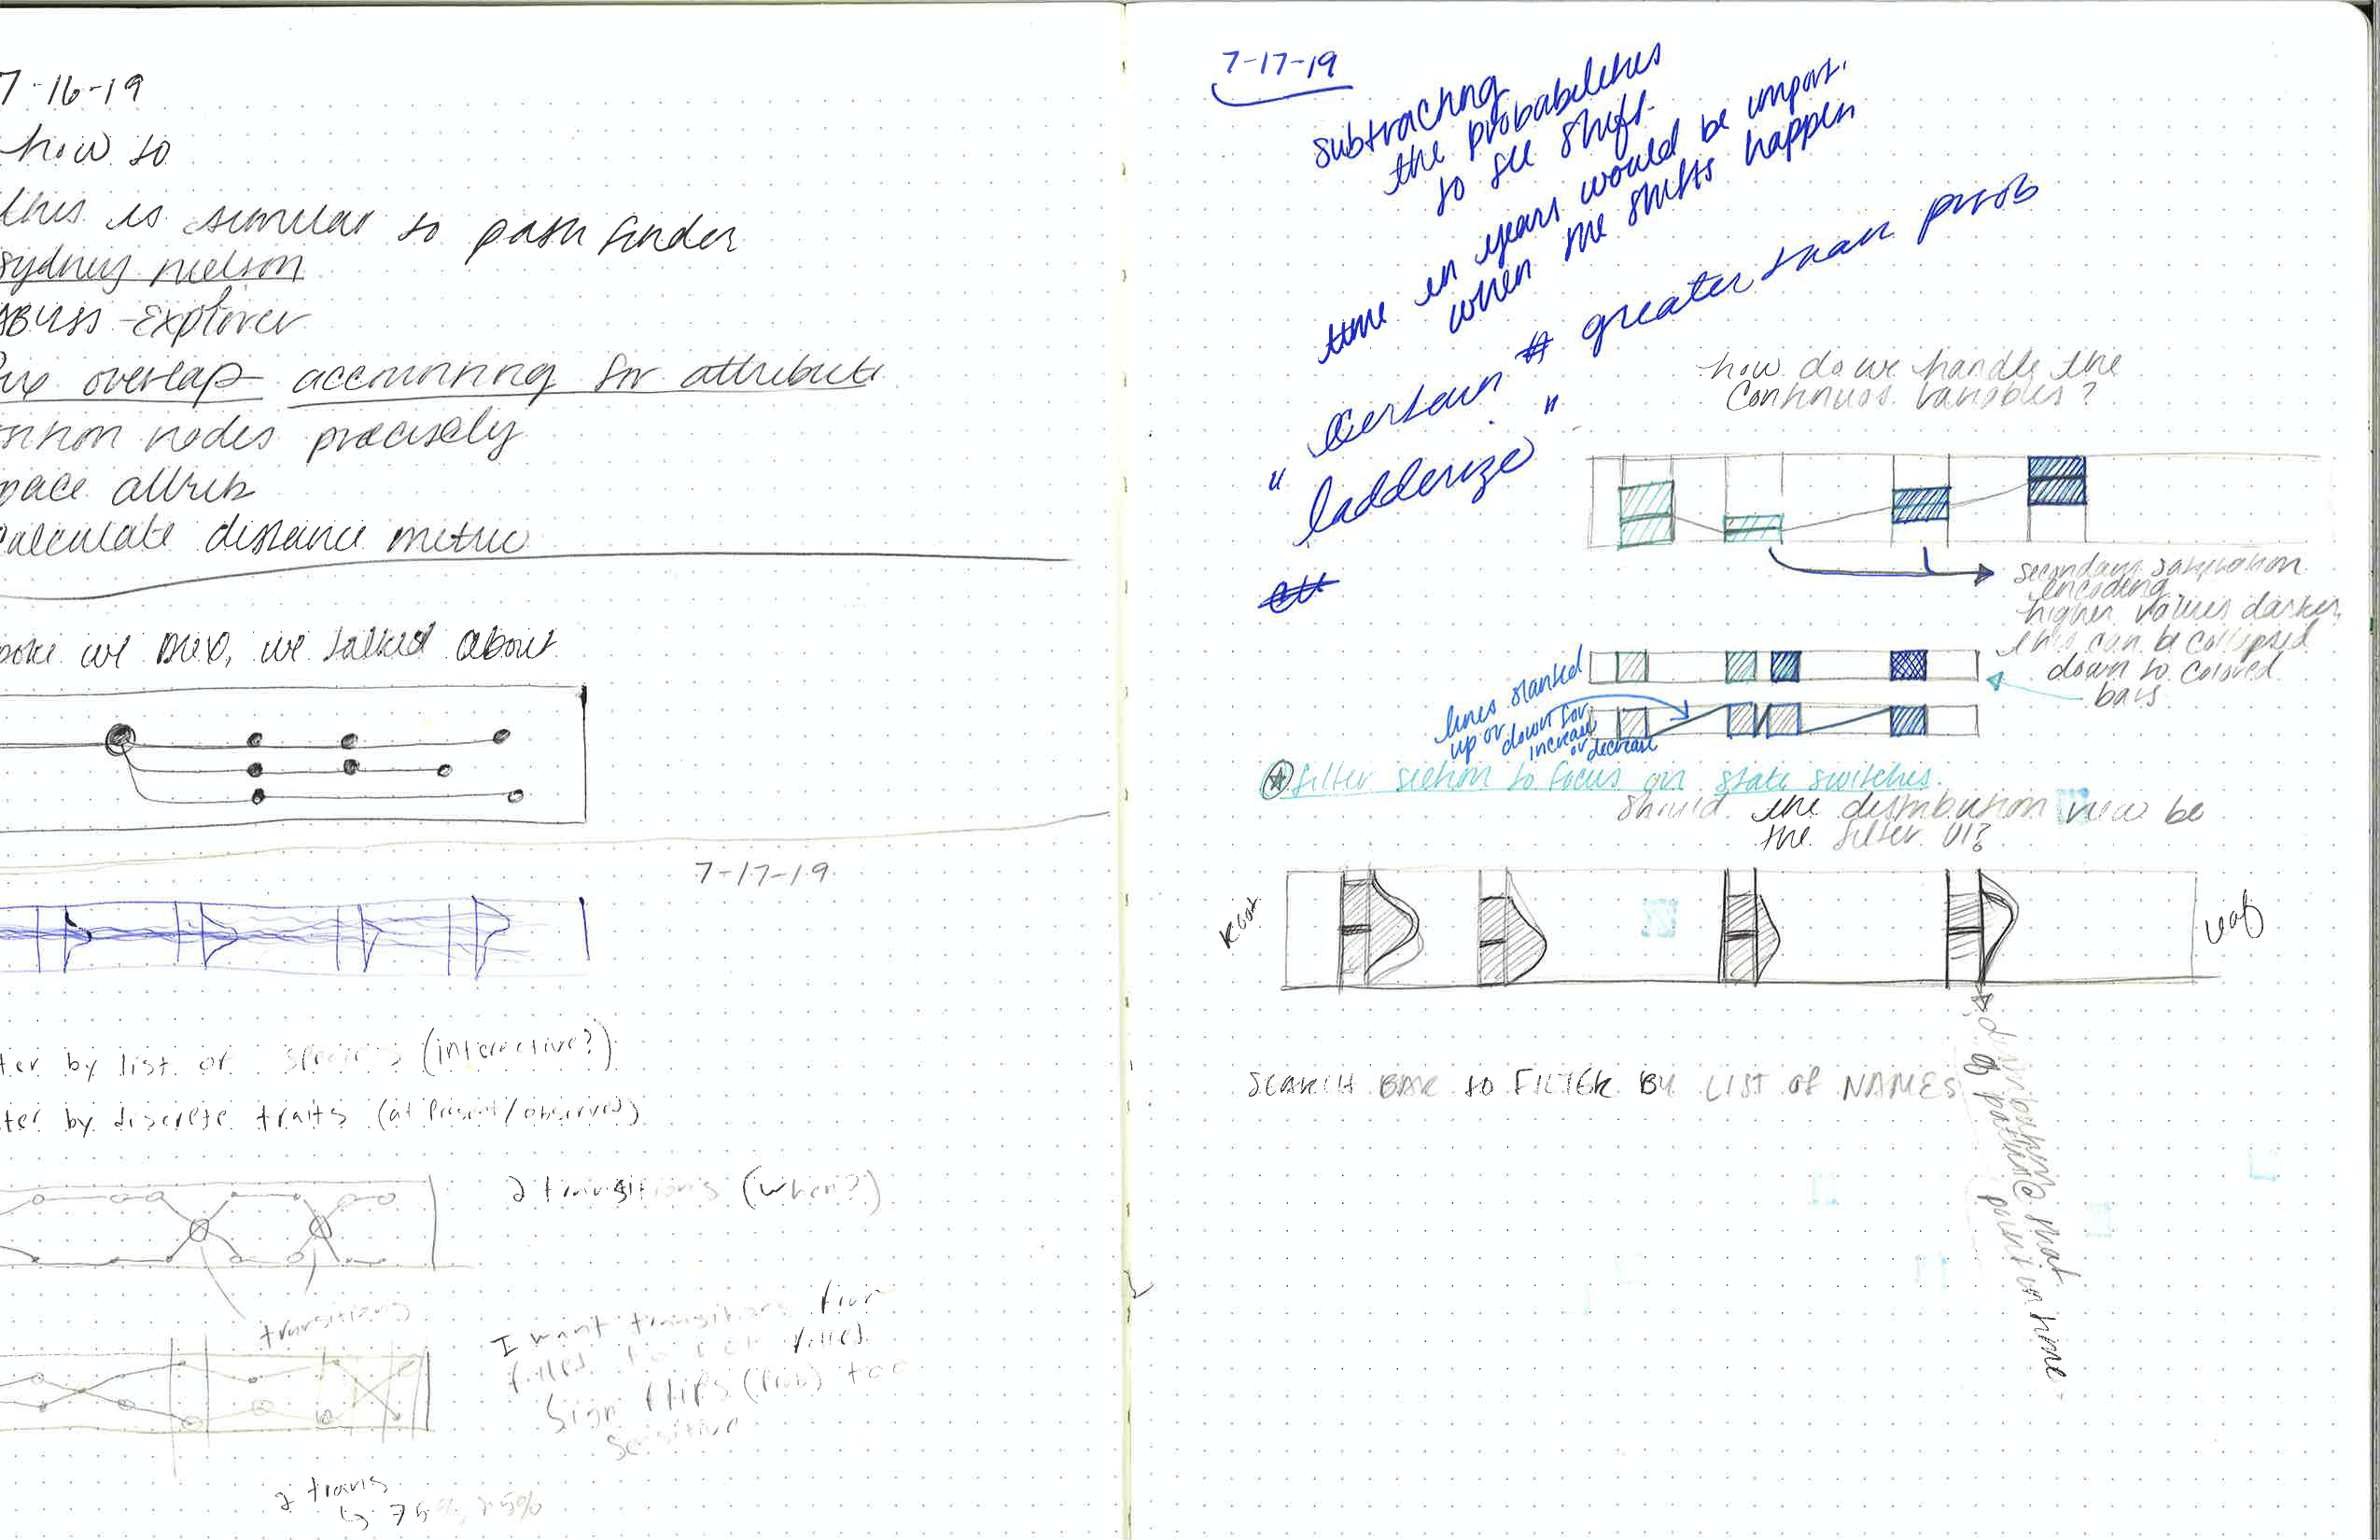 7-16-19
how to
this is similar to path finder
Sydney nielson
ABySS-Explorer
overlap accounting for attribute
common nodes precisely
space attrib
calculate distance metric
spoke w/ Drew, we talked about
7-17-19
ter by list of species (interactive?)
ter by discrete traits (at present/observed)
2 transitions (when?)
transitions
I want transitions from
filled to non filled
Sign flips (prob) too
sensitive
2 trans
↳ 75%, 25%
7-17-19
subtracting
the probabilities
to see shift.
time in years would be import.
when the shifts happen
"certain # greater than prob
ladderize"
how do we handle the
continuos variables?
secondary saturation
encoding
higher values darker,
this can be collapsed
down to colored
bars
lines slanted
up or down for
increase
or decrease
filter section to focus on state switches.
should the distribution view be
the filter UI?
Root
leaf
distribution
of paths @ that
point in time
SEARCH BAR to FILTER BY LIST of NAMES